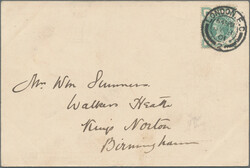 LONDON, E.C.
Mr Wm Sumners
Walkers Heath
Kings Norton
Birmingham